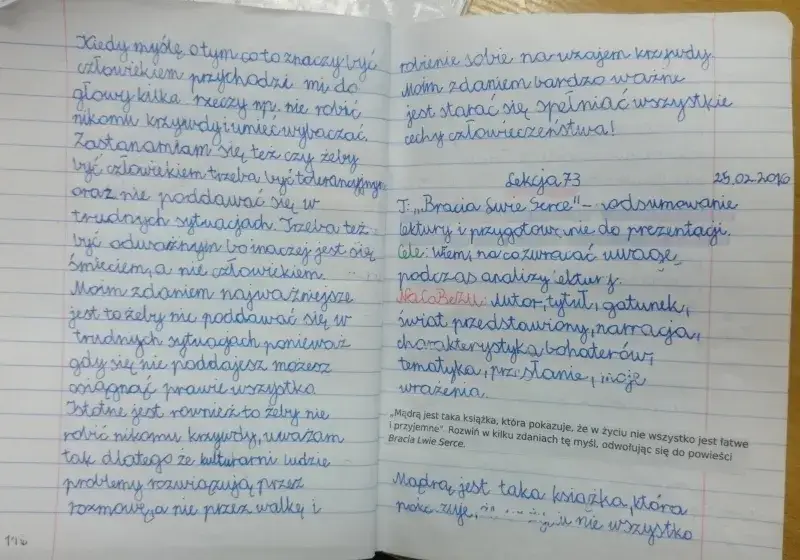 Kiedy myślę o tym co to znaczy być
człowiekiem przychodzi mi do
głowy kilka rzeczy np. nie robić
nikomu krzywdy i umieć wybaczać.
Zastanawiam się też czy żeby
być człowiekiem trzeba być tolerancyjnym
oraz nie poddawać się w
trudnych sytuacjach. Trzeba też
być odważnym bo inaczej jest się
śmieciem, a nie człowiekiem.
Moim zdaniem najważniejsze
jest to żeby nie poddawać się w
trudnych sytuacjach ponieważ
gdy się nie poddajesz możesz
osiągnąć prawie wszystko
Istotne jest również to żeby nie
robić nikomu krzywdy, uważam
tak dlatego że kulturarni ludzie
problemy rozwiązują przez
rozmowę, a nie przez walkę i
robienie sobie na wzajem krzywdy.
Moim zdaniem bardzo ważne
jest starać się spełniać wszystkie
cechy człowieczeństwa!
Lekcja 73 25.02.2016
T: „Bracia Lwie Serce" – podsumowanie
lektury i przygotowanie do prezentacji.
Cele: wiem, na co zwracać uwagę
podczas analizy lektury.
NaCoBeZU: Autor, tytuł, gatunek,
świat przedstawiony, narracja,
charakterystyka bohaterów,
tematyka, przesłanie, moje
wrażenia.
„Mądrą jest taka książka, która pokazuje, że w życiu nie wszystko jest łatwe
i przyjemne". Rozwiń w kilku zdaniach tę myśl, odwołując się do powieści
Bracia Lwie Serce.
Mądrą jest taka książka, która
nie wszystko
116